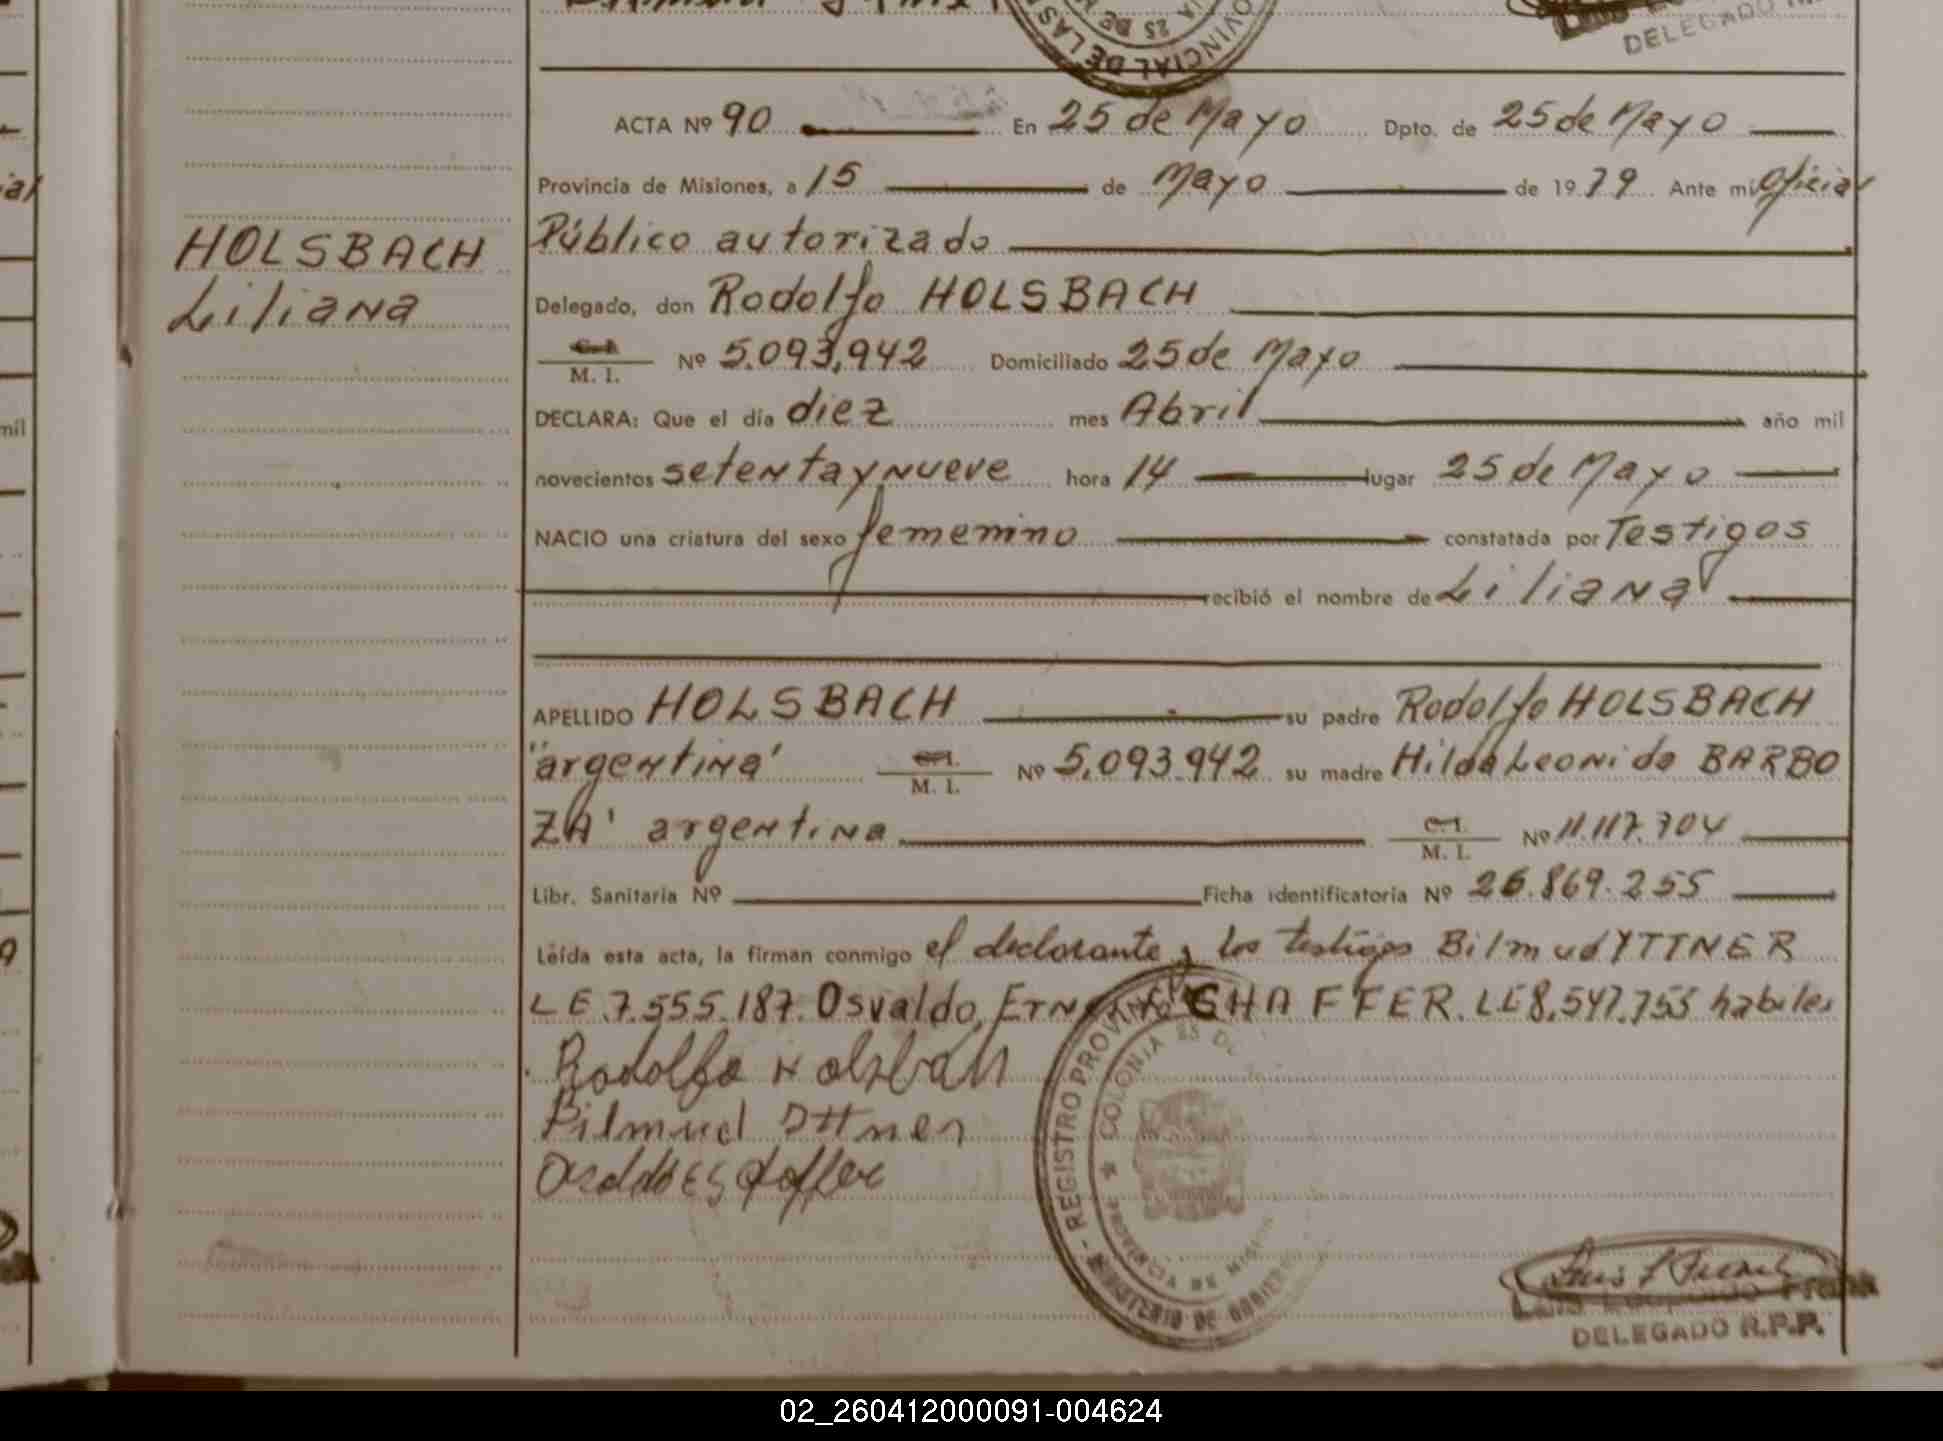 DELEGADO
ACTA Nº 90 En 25 de Mayo Dpto. de 25 de Mayo
Provincia de Misiones, a 15 de Mayo de 1979 Ante mi Oficial
Público autorizado
HOLSBACH
Liliana
Delegado, don Rodolfo HOLSBACH
C. I.
M. I. Nº 5.093,942 Domiciliado 25 de Mayo
DECLARA: Que el día diez mes Abril año mil
novecientos setenta y nueve hora 14 lugar 25 de Mayo
NACIO una criatura del sexo femenino constatada por Testigos
recibió el nombre de Liliana
APELLIDO HOLSBACH su padre Rodolfo HOLSBACH
"argentina' C. I. M. I. Nº 5.093.942 su madre Hilda Leonida BARBO
ZA' argentina C. I. M. I. Nº 11.117.704
Libr. Sanitaria Nº Ficha identificatoria Nº 26.869.255
Leída esta acta, la firman conmigo el declarante y los testigos Bilmud YTTNER
LE.7.555.187. Osvaldo, SHAFFER. LE8.547.755 habiles
Rodolfo Holsbach
Bilmud Ittner
REGISTRO PROVINCIAL
COLONIA 25 DE
PROVINCIA DE MISIONES
MINISTERIO DE GOBIERNO
DELEGADO R.P.P.
02_260412000091-004624